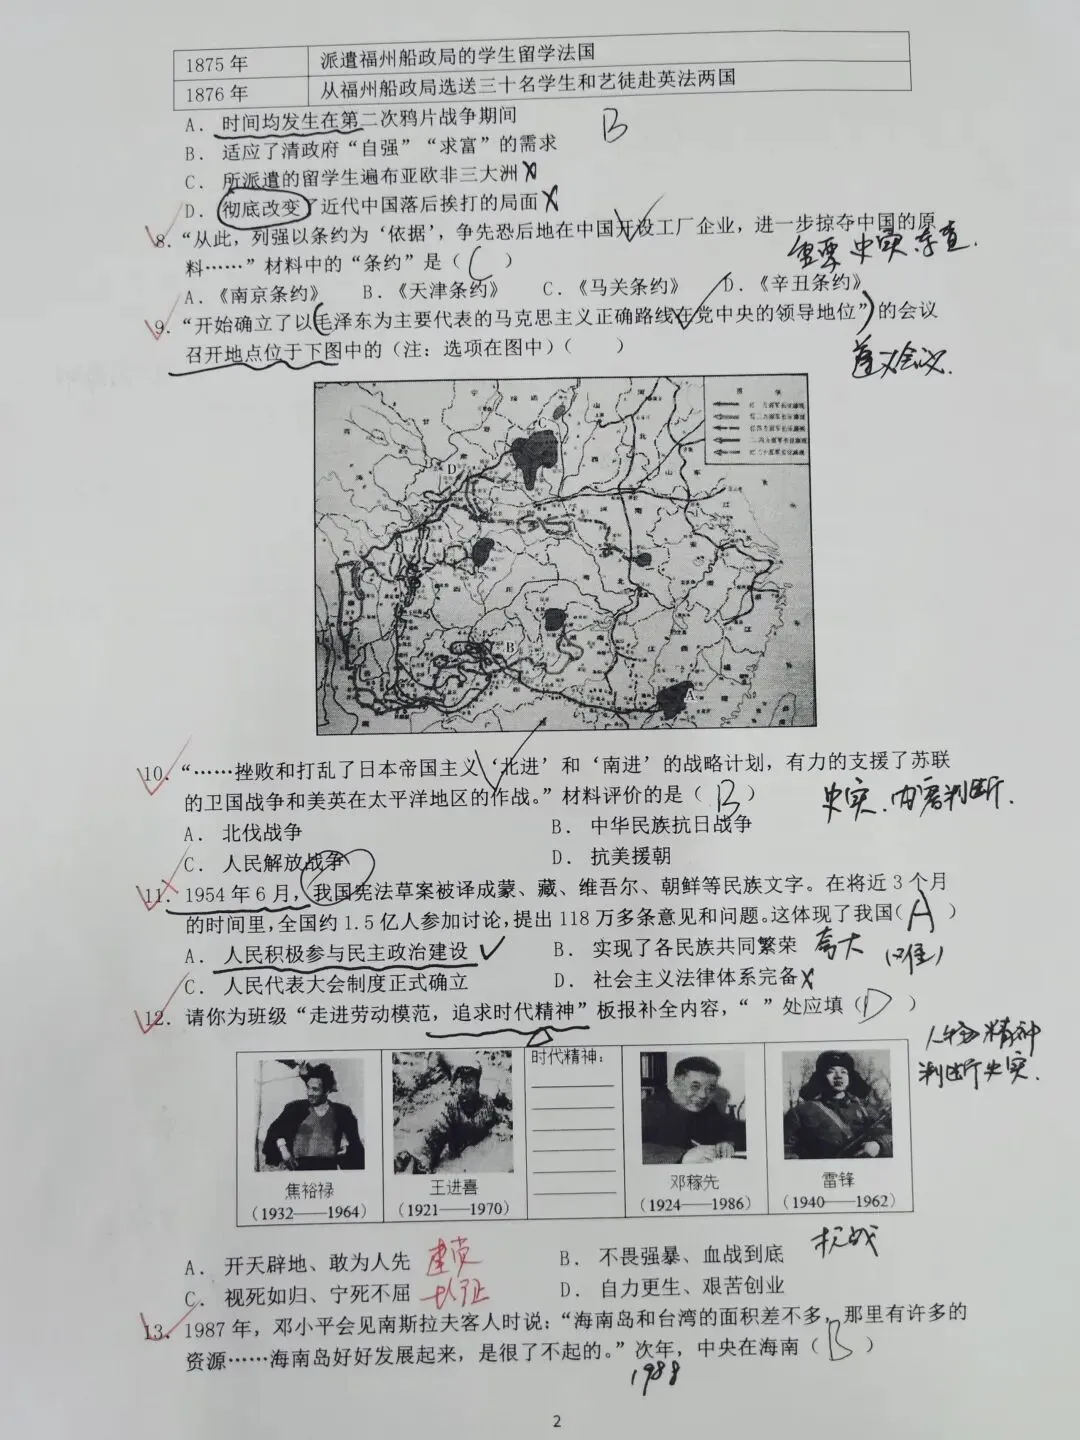 1875年 派遣福州船政局的学生留学法国
1876年 从福州船政局选送三十名学生和艺徒赴英法两国
A. 时间均发生在第二次鸦片战争期间
B
B. 适应了清政府“自强”“求富”的需求
C. 所派遣的留学生遍布亚欧非三大洲
D. 彻底改变了近代中国落后挨打的局面
8. “从此,列强以条约为‘依据’,争先恐后地在中国开设工厂企业,进一步掠夺中国的原
料……”材料中的“条约”是( C )
A.《南京条约》 B.《天津条约》 C.《马关条约》 D.《辛丑条约》
9. “开始确立了以毛泽东为主要代表的马克思主义正确路线在党中央的领导地位”的会议
召开地点位于下图中的(注:选项在图中)( )
遵义会议.
C
D
B
A
10. “……挫败和打乱了日本帝国主义‘北进’和‘南进’的战略计划,有力的支援了苏联
的卫国战争和美英在太平洋地区的作战。”材料评价的是( B )
史实.内容判断.
A. 北伐战争 B. 中华民族抗日战争
C. 人民解放战争 D. 抗美援朝
11. 1954年6月,我国宪法草案被译成蒙、藏、维吾尔、朝鲜等民族文字。在将近3个月
的时间里,全国约1.5亿人参加讨论,提出118万多条意见和问题。这体现了我国( A )
A. 人民积极参与民主政治建设 B. 实现了各民族共同繁荣 夸大 (难)
C. 人民代表大会制度正式确立 D. 社会主义法律体系完备
12. 请你为班级“走进劳动模范,追求时代精神”板报补全内容,“ ”处应填( D )
人物精神
判断史实.
时代精神:
焦裕禄
(1932——1964)
王进喜
(1921——1970)
邓稼先
(1924——1986)
雷锋
(1940——1962)
A. 开天辟地、敢为人先 建党 B. 不畏强暴、血战到底 抗战
C. 视死如归、宁死不屈 长征 D. 自力更生、艰苦创业
13. 1987年,邓小平会见南斯拉夫客人时说:“海南岛和台湾的面积差不多,那里有许多的
资源……海南岛好好发展起来,是很了不起的。”次年,中央在海南( B )
1988
2